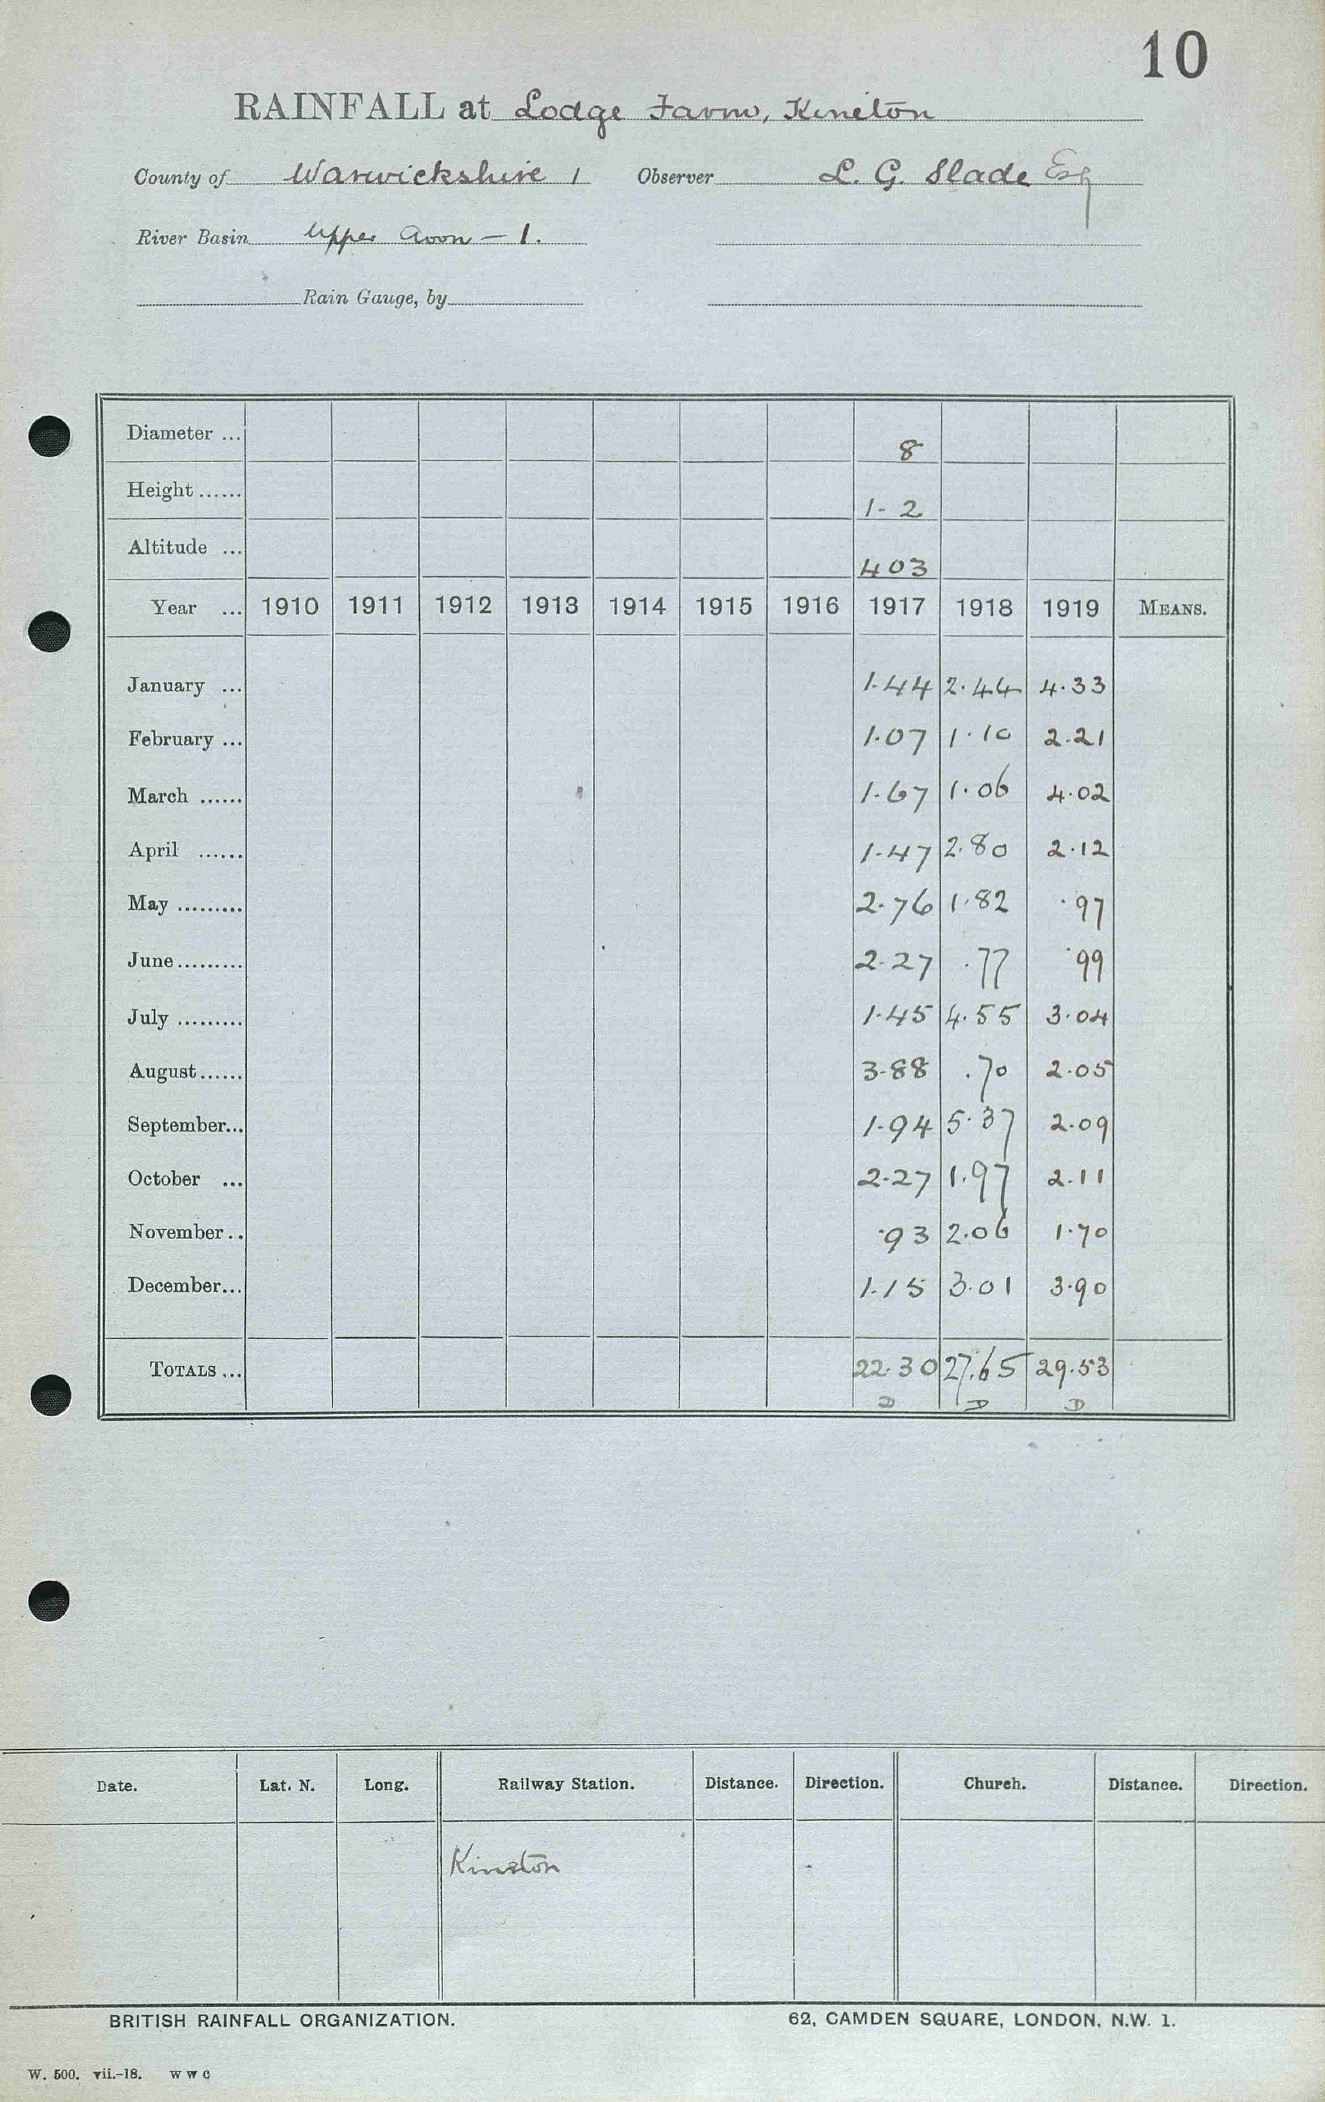 10
RAINFALL at Lodge Farm, Kineton
County of Warwickshire 1 Observer L. G. Slade Esq
River Basin Upper Avon – 1.
Rain Gauge, by
Diameter ... 8
Height ...... 1-2
Altitude ... 403
Year ... 1910 1911 1912 1913 1914 1915 1916 1917 1918 1919 MEANS.
January ... 1.44 2.44 4.33
February ... 1.07 1.10 2.21
March ...... 1.67 1.06 4.02
April ...... 1.47 2.80 2.12
May ......... 2.76 1.82 .97
June ......... 2.27 .77 .99
July ......... 1.45 4.55 3.04
August ...... 3.88 .70 2.05
September... 1.94 5.37 2.09
October ... 2.27 1.97 2.11
November .. .93 2.06 1.70
December... 1.15 3.01 3.90
TOTALS ... 22.30 27.65 29.53
D D D
Date. Lat. N. Long. Railway Station. Distance. Direction. Church. Distance. Direction.
Kineton
BRITISH RAINFALL ORGANIZATION. 62, CAMDEN SQUARE, LONDON, N.W. 1.
W. 500. vii.-18. W W C